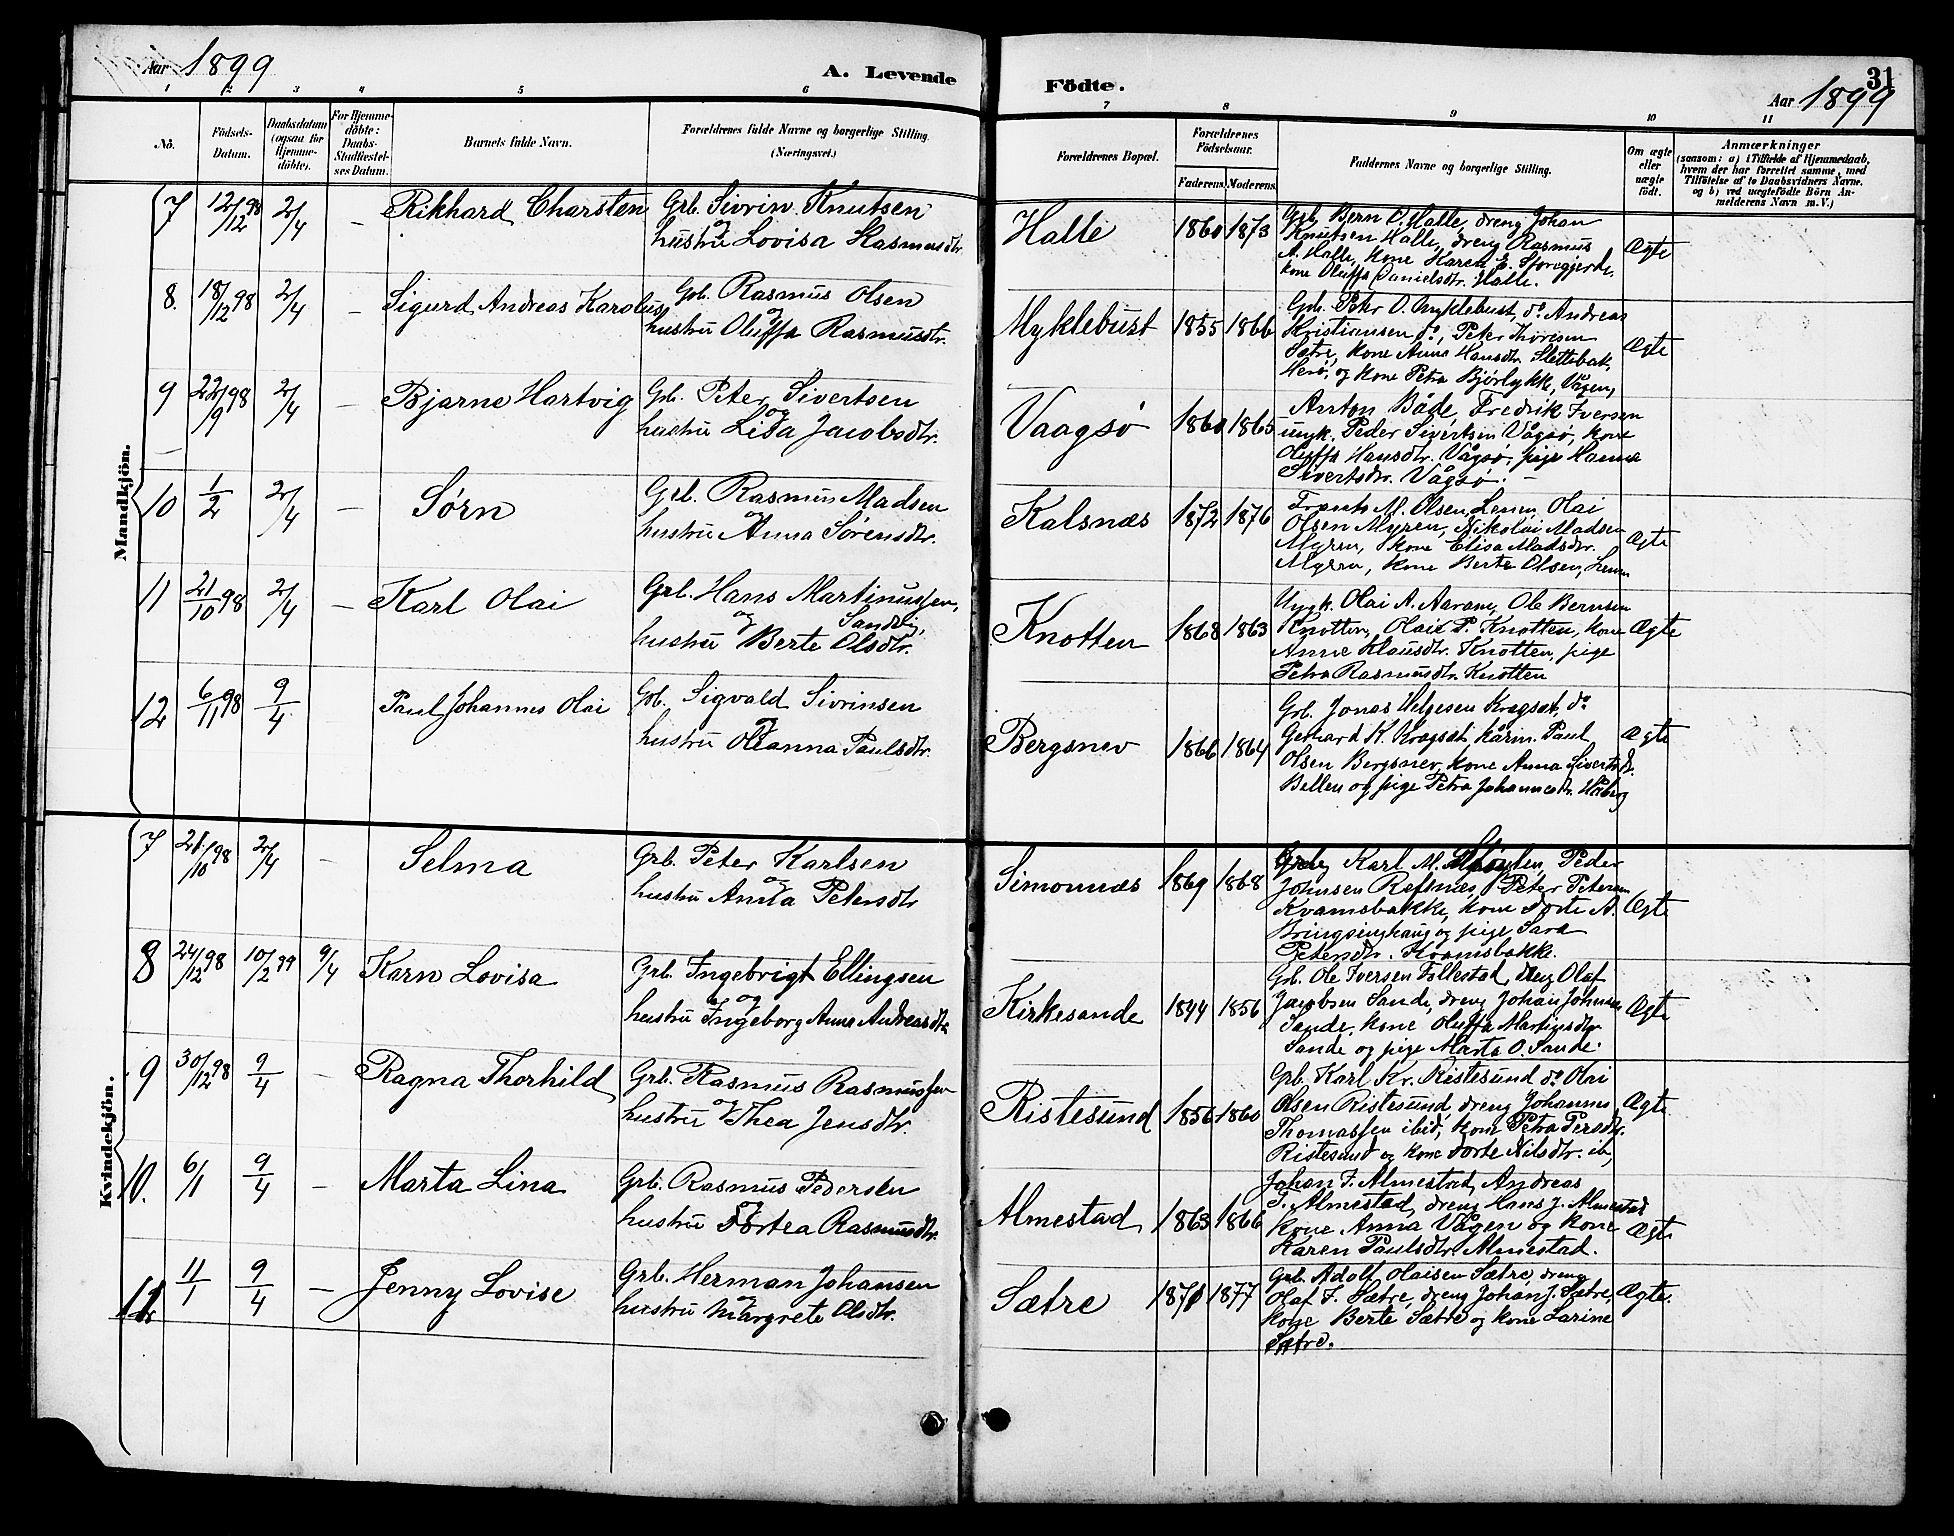 Aar 1899
A. Levende
1 2 3 4 5 6
No.
Födsels-
Datum.
Daabsdatum
(ogsaa for
Hjemme-
döbte).
For Hjemme-
döbte:
Daabs-
Stadfæstel-
ses Datum.
Barnets fulde Navn.
Forældrenes fulde Navne og borgerlige Stilling.
(Næringsvei.)
Mandkjön.
7 12/12 98 2/4 — Rikhard Charsten Grb. Sivrin Knutsen
og
hustru Lovisa Rasmusdtr.
8. 18/12 98 2/4 — Sigurd Andreas Karolius Grb. Rasmus Olsen
og
hustru Oluffa Rasmusdtr.
9 22/9 98 2/4 — Bjarne Hartvig Grb. Peter Sivertsen
og
hustru Lisa Jacobsdtr.
10 1/2 2/4 — Sørn Grb. Rasmus Madsen
og
hustru Anna Sørensdtr.
11 21/10 98 2/4 — Karl Olai Grb. Hans Martinussen,
og Sandvig,
hustru Berte Olsdtr.
12 6/11 98 9/4 Paul Johannes Olai Grb. Sigvald Sivrinsen
og
hustru Oleanna Paulsdtr.
Kvindekjön.
7 21/10 98 2/4 — Selma Grb. Peter Karlsen
og
hustru Anna Petersdtr
8 24/12 98 10/2 99 9/4 Karn Lovisa Grb. Ingebrigt Ellingsen
og
hustru Ingeborg Anna Andreasdtr
9 30/12 98 9/4 — Ragna Thorhild Grb. Rasmus Rasmussen
og
hustru Thea Jensdtr.
10. 6/1 9/4 — Marta Lina Grb. Rasmus Pedersen
og
hustru Dortea Rasmusdtr.
11. 11/1 9/4 — Jenny Lovise Grb. Herman Johansen
og
hustru Margrete Olsdtr.
Födte.
31
Aar 1899
7 8 9 10 11
Forældrenes Bopæl.
Forældrenes
Födselsaar.
Faderens. Moderens.
Faddernes Navne og borgerlige Stilling.
Om ægte
eller
uægte
födt.
Anmærkninger
(saasom: a) i Tilfælde af Hjemmedaab,
hvem der har forrettet samme, med
Tilföielse af to Daabsvidners Navne.
og b) ved uægtefödte Börn An-
melderens Navn m. V.)
Halle 1860 1873 Grb. Bern O. Halle, dreng Johan
Knutsen Halle, dreng Rasmus
A. Halle, kone Karen E. Storegjerde,
kone Oluffa Danielsdtr. Halle.
Ægte
Myklebust 1855 1866 Grb. Peter O. Myklebust, do Andreas
Kristiansen do, Peter Thoresen
Sætre, kone Anna Hansdtr. Slettebak,
Herø, og kone Petra Bjørlykke, Vågen,
Ægte
Vaagsø 1860 1865 Anton Både, Fredrik Iversen
ungk. Peder Sivertsen Vågsø, kone
Oluffa Hansdtr. Vågsø, pige Hanna
Sivertsdtr. Vågsø. —
Kalsnæs 1872 1876 Frants M. Olsen, Lenin, Olai
Olsen Myren, Nikolai Madsen
Myren, kone Elisa Madsdtr.
Myren, kone Berte Olsen,
Ægte
Knotten 1868 1863 Ungk. Olai A. Aaram, Ole Bernsen
Knotten, Olai P. Knotten, kone
Anne Klausdtr. Knotten, pige
Petra Rasmusdtr. Knotten
Ægte
Bergsnev 1866 1864 Grb. Jonas Helgesen Kragset, do
Gerhard K. Kragset, Paul
Olsen Bergsnev, kone Anna Sivertsdtr.
Bellen og pige Petra Johannesdtr.
Ægte
Simonnæs 1869 1868 Karl M. Peder
Johnsen Refsnæs, Peter Petersen
Kvamsbakke, kone Dorte A.
og pige Sara
Petersdtr. Kvamsbakke.
Ægte
Kirkesande 1844 1856 Grb. Ole Iversen Follestad, dreng Olaf
Jacobsen Sande, dreng Johan Johnsen
Sande, kone Oluffa Martinsdtr.
Sande og pige Marta O. Sande.
Ægte
Ristesund 1856 1860 Grb. Karl Kr. Ristesund do Olai
Olsen Ristesund, dreng Johannes
Thomassen ibid, kone Petra Persdtr.
Ristesund og kone Dorte Nilsdtr. ib,
Ægte
Almestad 1863 1866 Johan I. Almestad, Andreas
T. Almestad, dreng Hans J. Almestad
kone Anna Vågen og kone
Karen Paulsdtr. Almestad.
Ægte
Sætre 1871 1877 Grb. Adolf Olaisen Sætre, dreng
Olaf I. Sætre, dreng Johan J. Sætre,
kone Berte Sætre og kone Larine
Sætre.
Ægte.